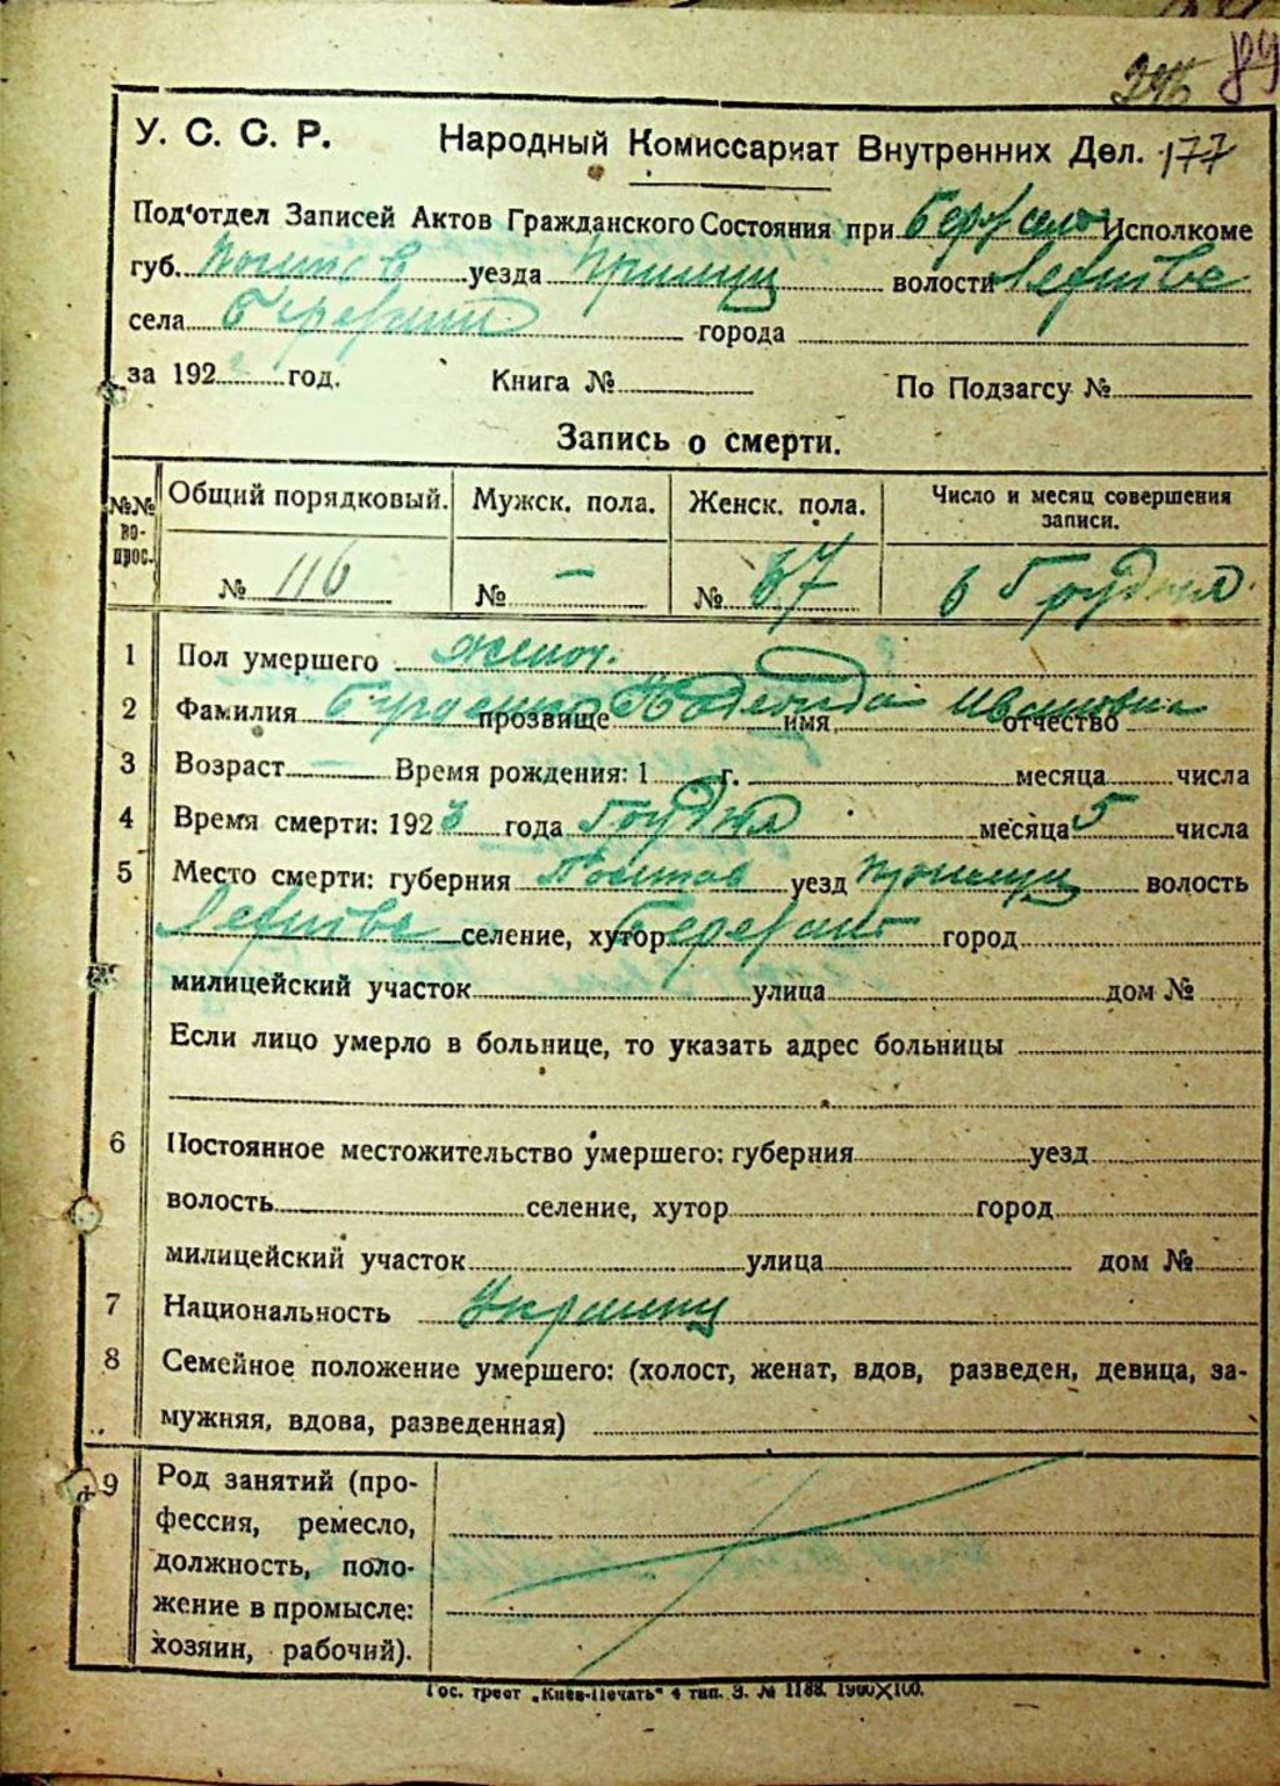 296 89
У. С. С. Р. Народный Комиссариат Внутренних Дел. 177
Под'отдел Записей Актов Гражданского Состояния при Исполкоме
губ. Полтав уезда Прилуц волости
села города
за 192 год. Книга № По Подзагсу №
Запись о смерти.
№№ во- прос. Общий порядковый. Мужск. пола. Женск. пола. Число и месяц совершения записи.
№ 116 № — № 57 6 Грудня
1 Пол умершего женоч.
2 Фамилия прозвище Надежда имя Ивановна отчество
3 Возраст — Время рождения: 1 г. месяца числа
4 Время смерти: 1923 года Грудня месяца 5 числа
5 Место смерти: губерния Полтав уезд Прилуц волость
селение, хутор город
милицейский участок улица дом №
Если лицо умерло в больнице, то указать адрес больницы
6 Постоянное местожительство умершего: губерния уезд
волость селение, хутор город
милицейский участок улица дом №
7 Национальность Украинц
8 Семейное положение умершего: (холост, женат, вдов, разведен, девица, за-
мужняя, вдова, разведенная)
9 Род занятий (про-
фессия, ремесло,
должность, поло-
жение в промысле:
хозяин, рабочий).
Гос. трест „Киев-Печать“ 4 тип. З. № 1188. 1900×100.